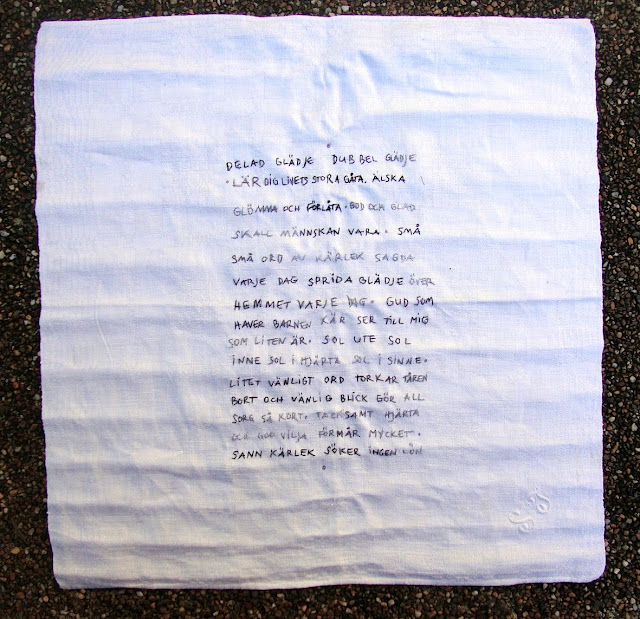 DELAD GLÄDJE DUBBEL GÄDJE
· LÄR DIG LIVETS STORA GÅTA. ÄLSKA
GLÖMMA OCH FÖRLÅTA · GOD OCH GLAD
SKALL MÄNNSKAN VARA · SMÅ
SMÅ ORD AV KÄRLEK SAGDA
VARJE DAG SPRIDA GLÄDJE ÖVER
HEMMET VARJE DAG · GUD SOM
HAVER BARNEN KÄR SER TILL MIG
SOM LITEN ÄR. SOL UTE SOL
INNE SOL I HJÄRTA SOL I SINNE.
LITET VÄNLIGT ORD TORKAR TÅREN
BORT OCH VÄNLIG BLICK GÖR ALL
SORG SÅ KORT. TACKSAMT HJÄRTA
OCH GOD VILJA FÖRMÅR MYCKET ·
SANN KÄRLEK SÖKER INGEN LÖN